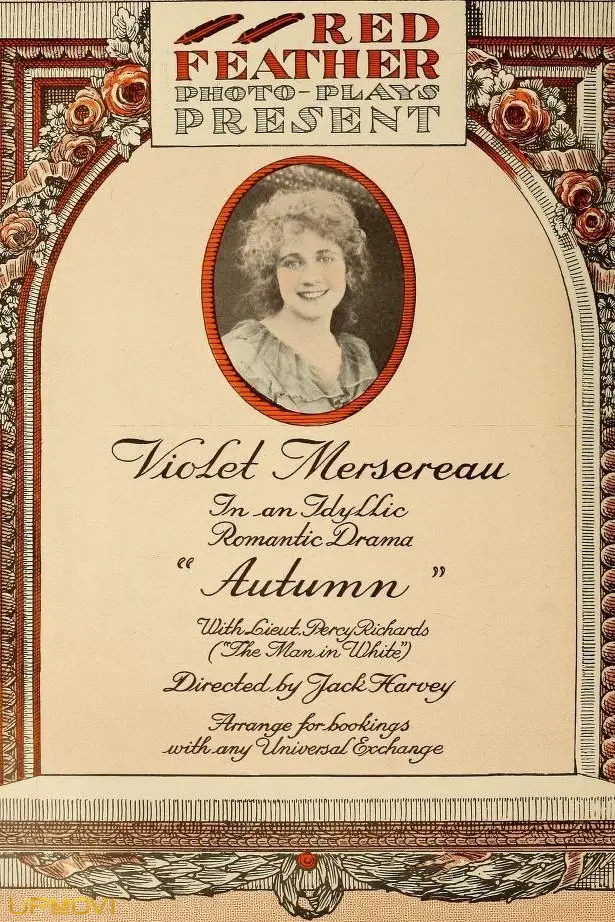 RED
FEATHER
PHOTO-PLAYS
PRESENT
Violet Mersereau
In an Idyllic
Romantic Drama
"Autumn"
With Lieut. Percy Richards
("The Man in White")
Directed by Jack Harvey
Arrange for bookings
with any Universal Exchange
UPMOVI